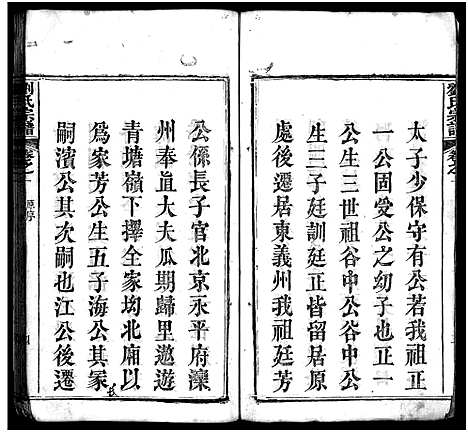 太子少保守有公若我祖正
一公固受公之幼子也正一
公生三世祖谷中公谷中公
生三子廷訓廷正皆留居原
處後遷居東義州我祖廷芳
公係長子官北京永平府灤
州奉直大夫瓜期歸里遨遊
青塘嶺下擇全家坳北廂以
為家芳公生五子海公其冢
嗣濱公其次嗣也江公後遷
劉氏宗譜